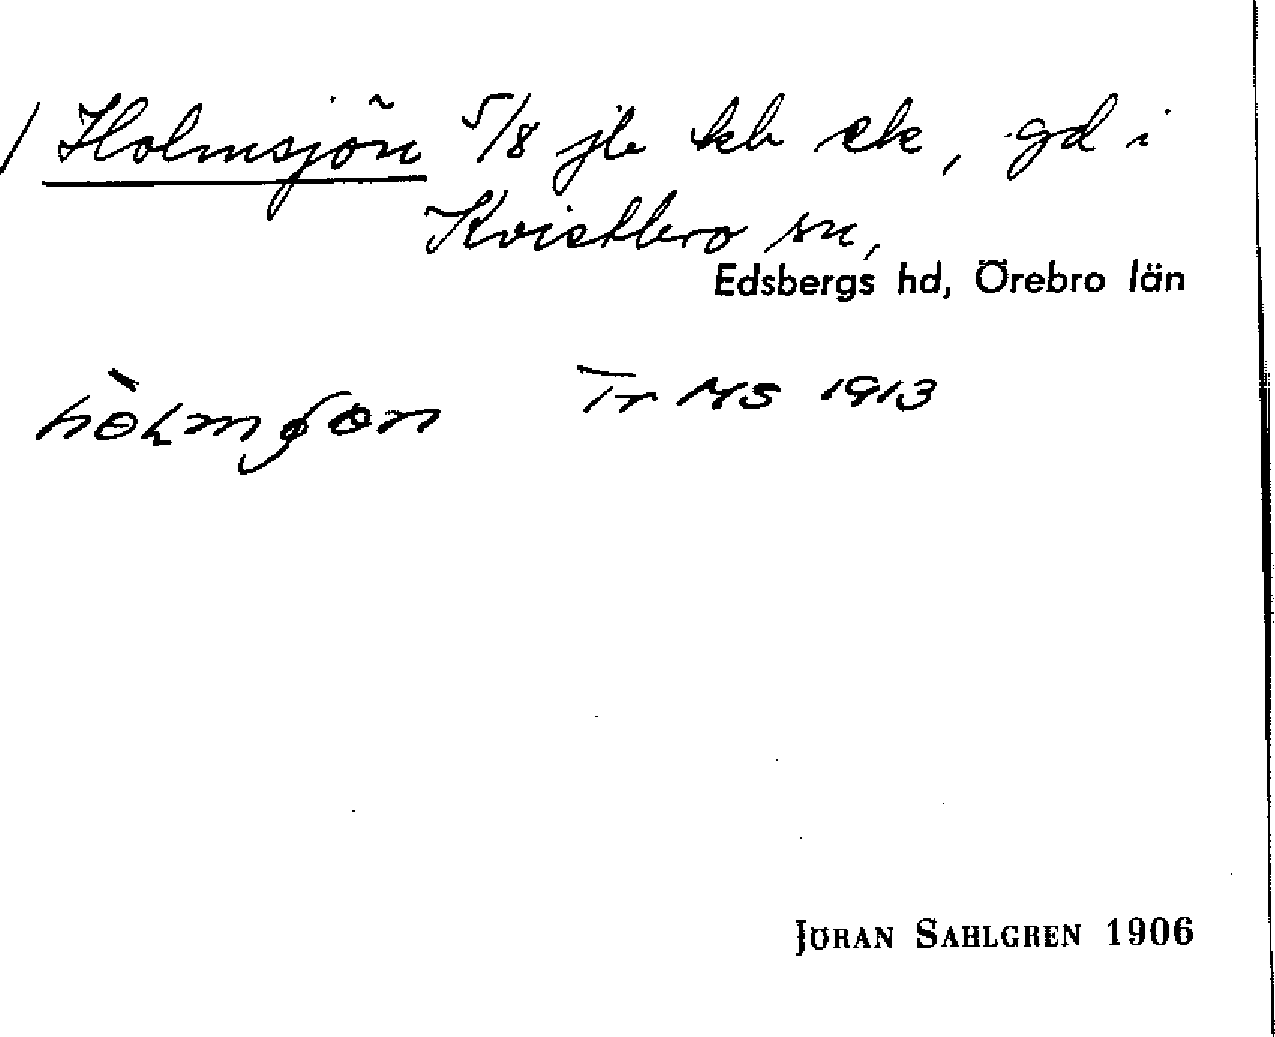 / Holmsjön 5/8 jb kb ek, gd i
Kvistbro sn,
Edsbergs hd, Örebro län
Tr MS 1913
JÖRAN SAHLGREN 1906